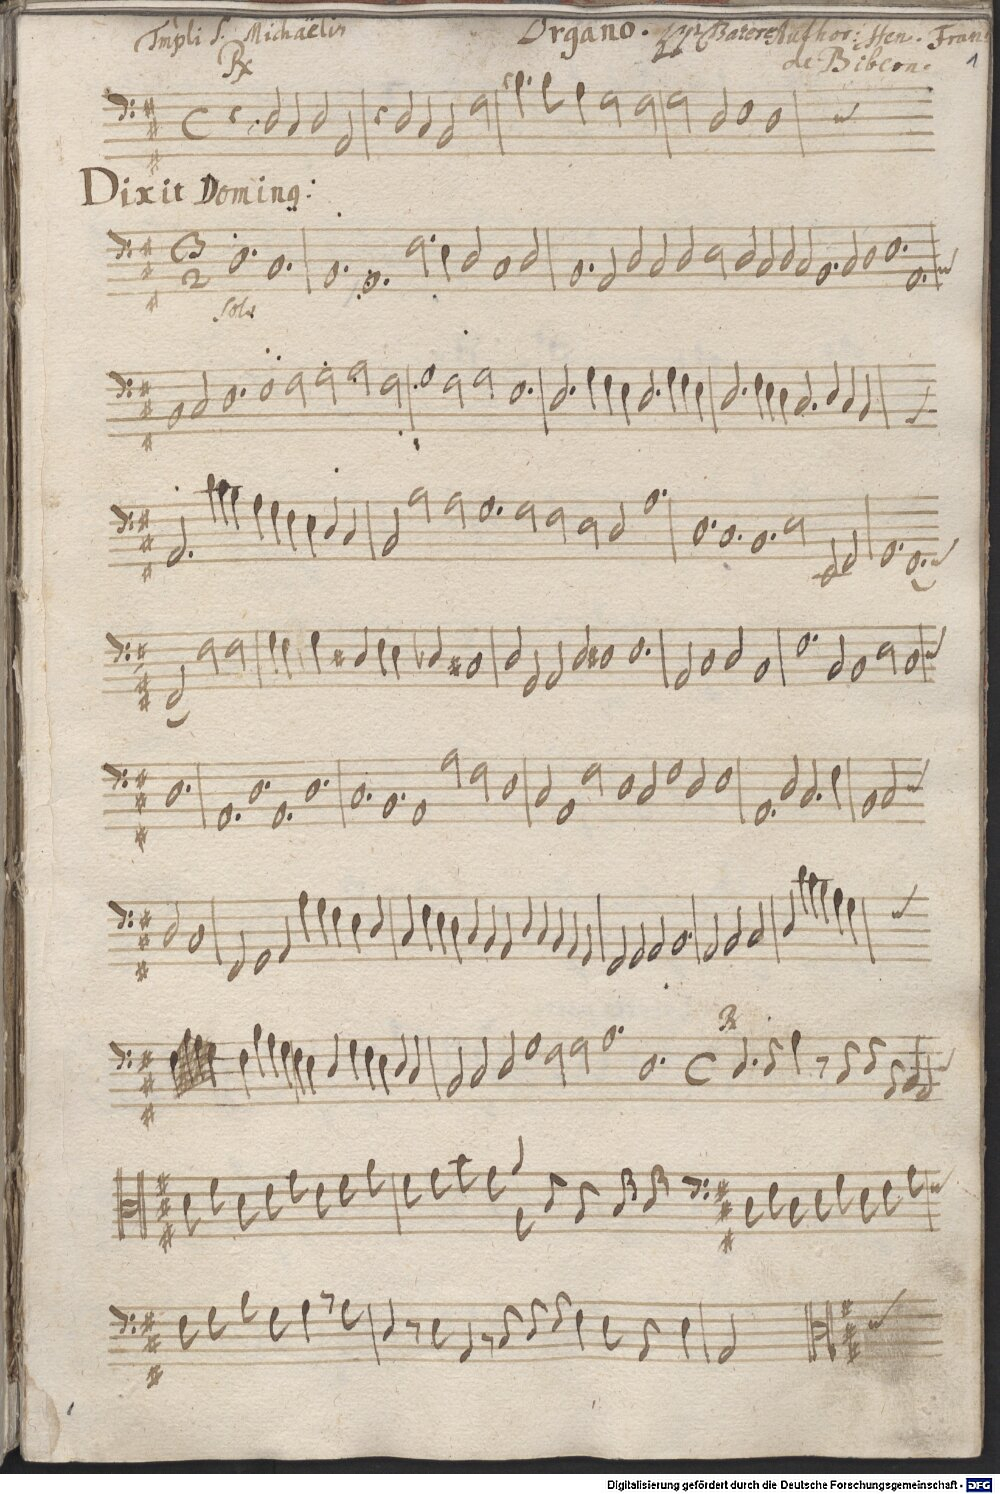 Templi S. Michaëlis Organo. Author: Hen. Fran:
de Bibern. 1
Dixit Doming:
Solo
Digitalisierung gefördert durch die Deutsche Forschungsgemeinschaft - DFG